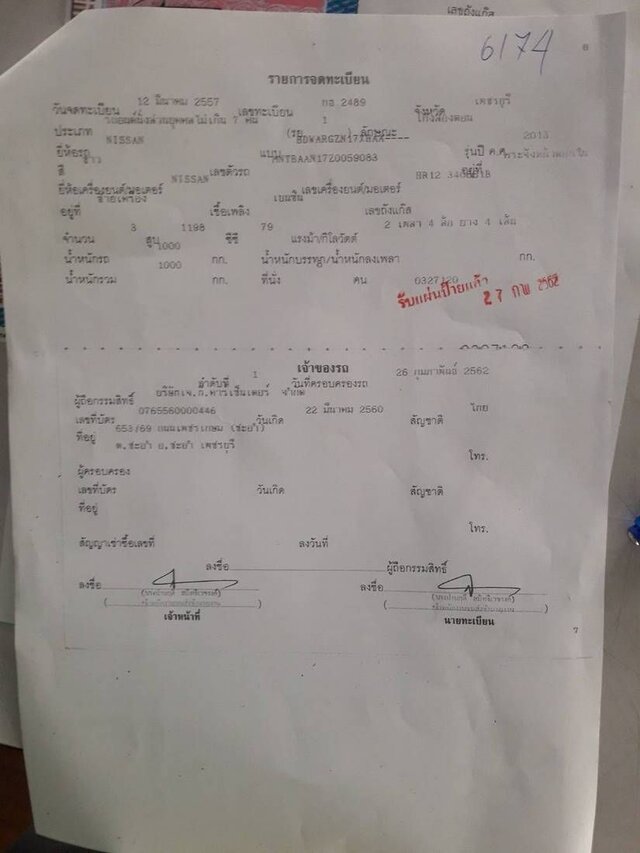 เลขถังแก๊ส
6174
8
รายการจดทะเบียน
วันจดทะเบียน 12 มีนาคม 2557 เลขทะเบียน กฉ 2489 จังหวัด เพชรบุรี
ประเภท รถยนต์นั่งส่วนบุคคลไม่เกิน 7 คน (รย. 1 ) ลักษณะ เก๋งสองตอน
ยี่ห้อรถ NISSAN แบบ BDWARGZN17XBAX---- รุ่นปี ค.ศ. 2013
สี ขาว เลขตัวรถ MNTBAAN17Z0059083 อยู่ที่
ยี่ห้อเครื่องยนต์/มอเตอร์ NISSAN เลขเครื่องยนต์/มอเตอร์ HR12
อยู่ที่ ซ้ายเครื่อง เชื้อเพลิง เบนซิน เลขถังแก๊ส
จำนวน 3 สูบ 1198 ซีซี 79 แรงม้า/กิโลวัตต์ 2 เพลา 4 ล้อ ยาง 4 เส้น
น้ำหนักรถ 1000 กก. น้ำหนักบรรทุก/น้ำหนักลงเพลา กก.
น้ำหนักรวม 1000 กก. ที่นั่ง คน 0327120
รับแผ่นป้ายแล้ว
27 กพ 2562
เจ้าของรถ
ลำดับที่ 1 วันที่ครอบครองรถ 26 กุมภาพันธ์ 2562
ผู้ถือกรรมสิทธิ์ บริษัทเจ.ถ.คาร์เซ็นเตอร์ จำกัด
เลขที่บัตร 0765560000446 วันเกิด 22 มีนาคม 2560 สัญชาติ ไทย
ที่อยู่ 653/69 ถนนเพชรเกษม (ชะอำ)
ต.ชะอำ อ.ชะอำ เพชรบุรี
โทร.
ผู้ครอบครอง
เลขที่บัตร วันเกิด สัญชาติ
ที่อยู่
โทร.
สัญญาเช่าซื้อเลขที่ ลงวันที่
ลงชื่อ ผู้ถือกรรมสิทธิ์
ลงชื่อ ลงชื่อ
เจ้าหน้าที่ นายทะเบียน
7